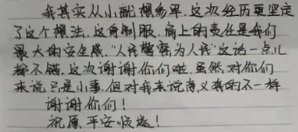 我其实从小就想当军，这次经历更坚定
了这个想法，这身制服，肩上的责任是我们
最大的安全感，“人民警察为人民”这话一点儿
都不错，这次谢谢你们啦，虽然对你们
来说只是小事，但对我来说意义真的不一样
谢谢你们！
祝愿平安顺遂！